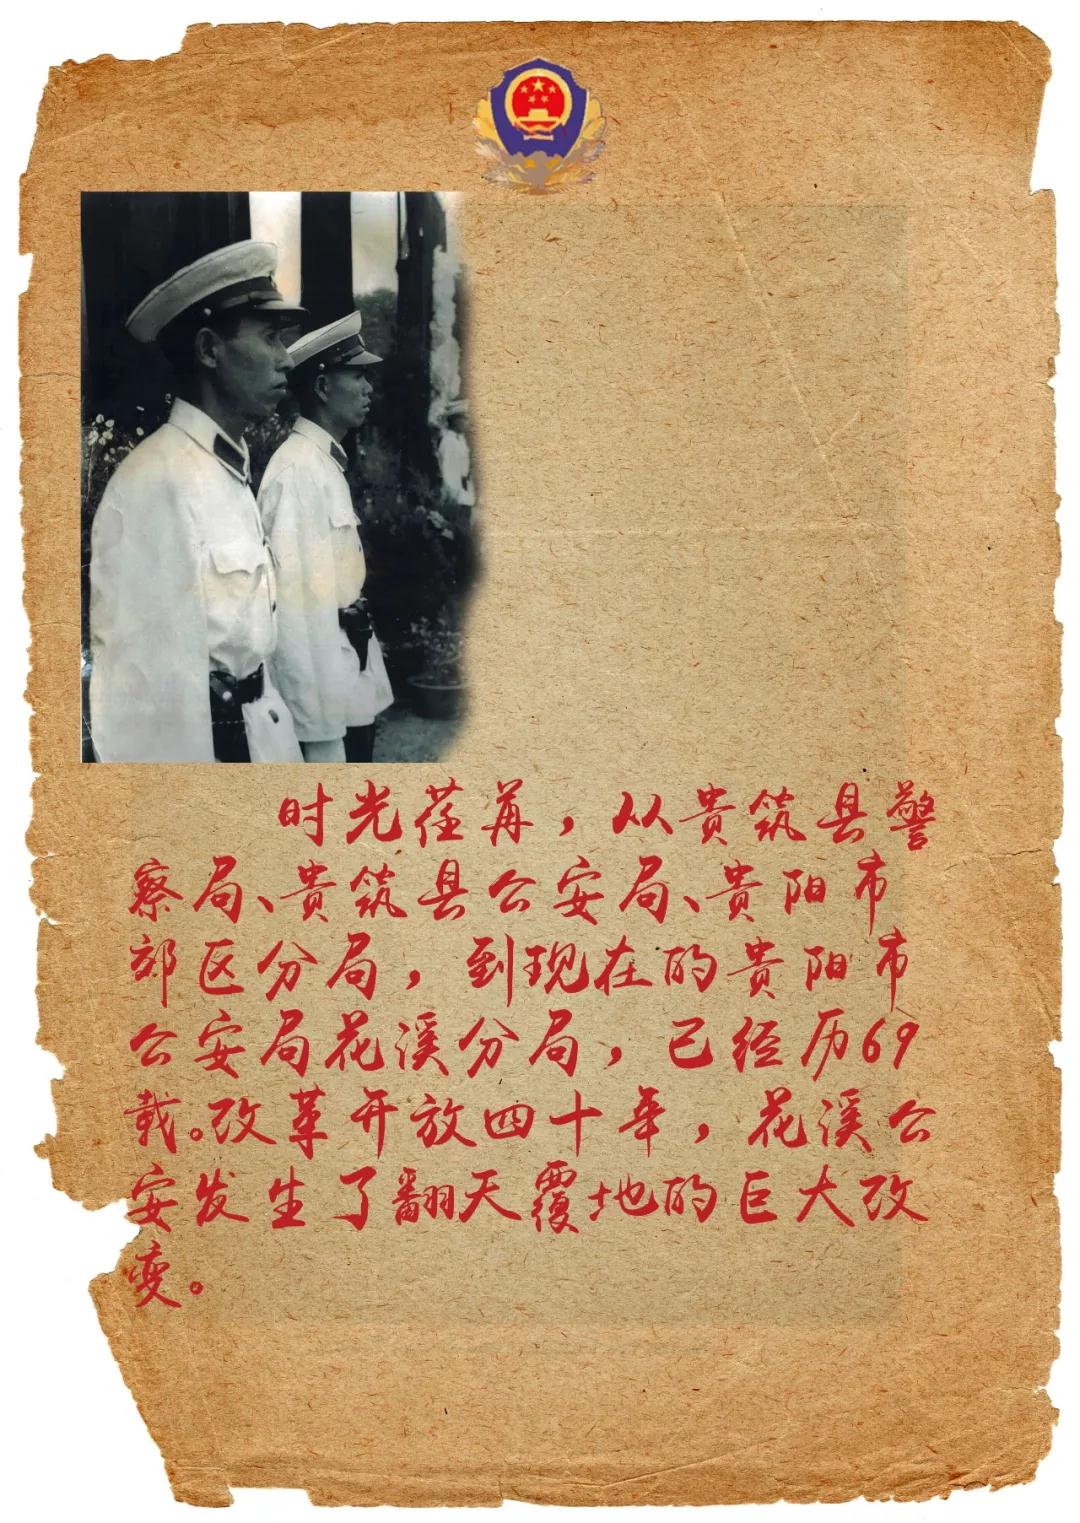 时光荏苒，从贵筑县警
察局、贵筑县公安局、贵阳市
郊区分局，到现在的贵阳市
公安局花溪分局，已经历69
载。改革开放四十年，花溪公
安发生了翻天覆地的巨大改
变。